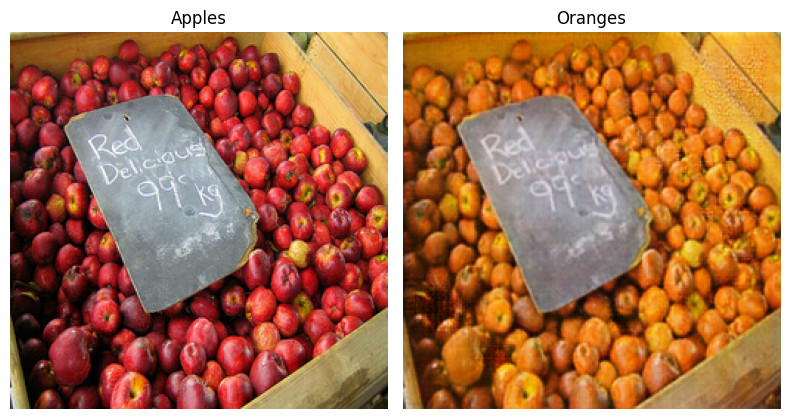 Apples
Red
Delicious
99c kg
Oranges
Red
Delicious
99c kg